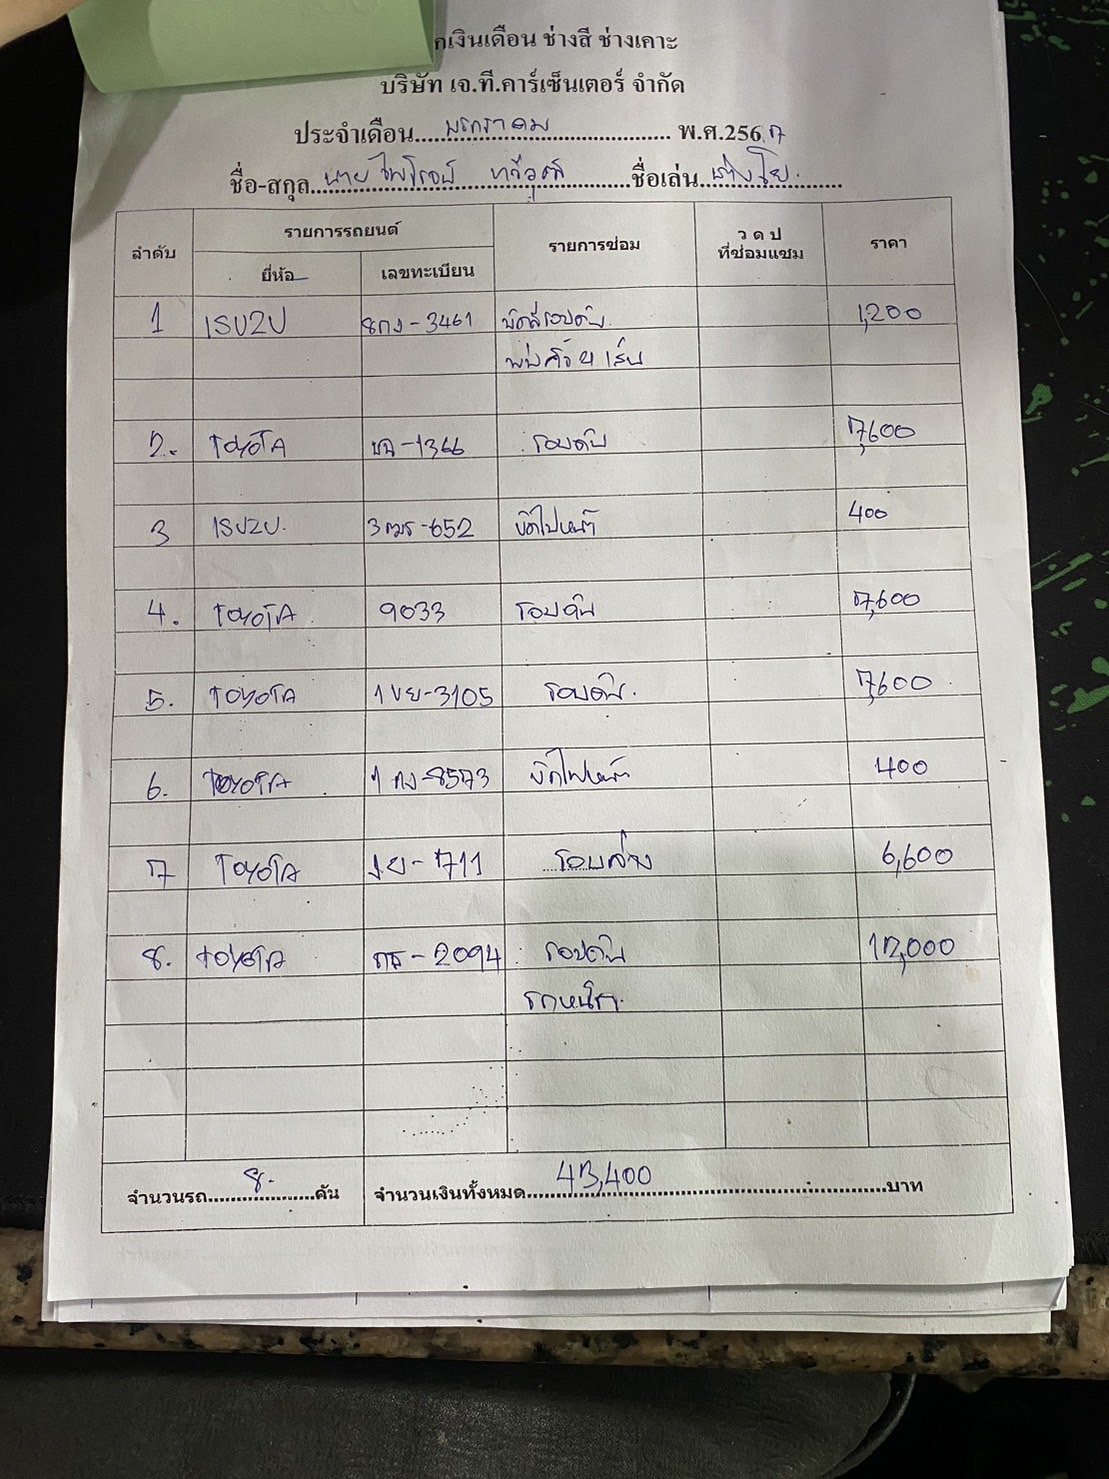 กเงินเดือน ช่างสี ช่างเคาะ
บริษัท เจ.ที.คาร์เซ็นเตอร์ จำกัด
ประจำเดือน มกราคม พ.ศ.2567
ชื่อ-สกุล นาย ไพโรจน์ ชื่อเล่น
ลำดับ รายการรถยนต์ รายการซ่อม ว ด ป ที่ซ่อมแซม ราคา
ยี่ห้อ เลขทะเบียน
1 ISUZU 8กง-3461 ขัดสีรอบคัน 1,200
2. TOYOTA -1366 รอบคัน 7,600
3 ISUZU 3ฒร-652 ขัดไฟหน้า 400
4. TOYOTA 9033 รอบคัน 7,600
5. TOYOTA 1ขย-3105 รอบคัน 7,600
6. TOYOTA 1กง-8573 ขัดไฟหน้า 400
7 TOYOTA -711 รอบล่าง 6,600
8. TOYOTA -2094 รอบคัน 12,000
จำนวนรถ 8. คัน จำนวนเงินทั้งหมด 43,400 บาท